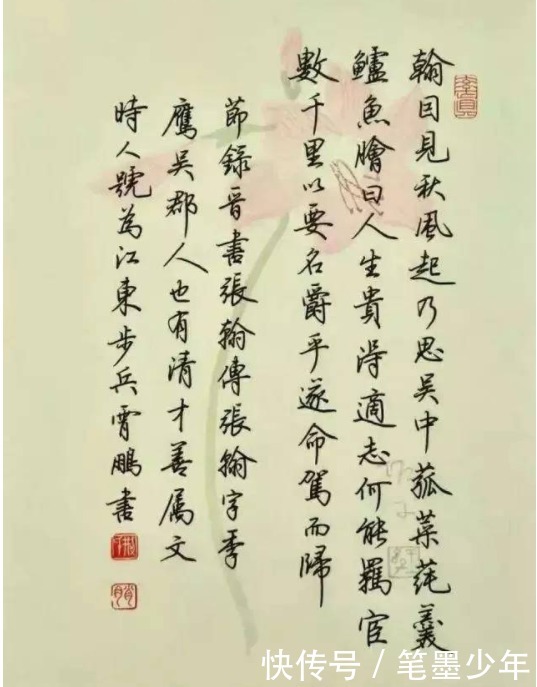 翰因見秋風起乃思吳中菰菜蒓羹
鱸魚膾曰人生貴得適志何能羈宦
數千里以要名爵乎遂命駕而歸
節錄晉書張翰傳張翰字季
鷹吳郡人也有清才善属文
時人號為江東步兵霄鵬書
快传号 / 笔墨少年